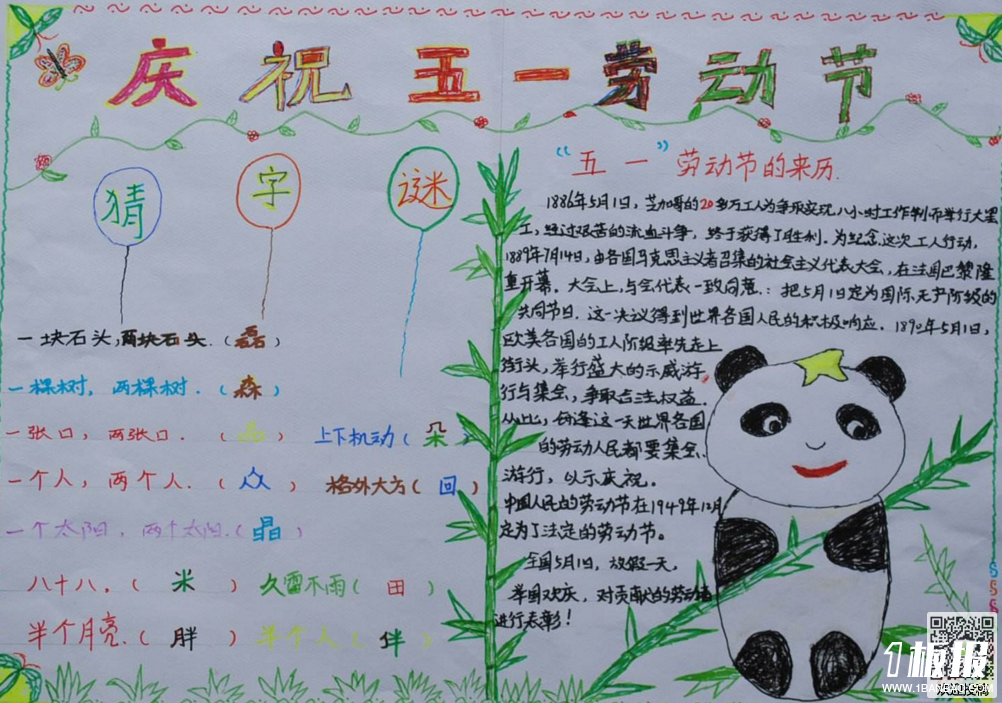 庆祝五一劳动节
猜字谜
一块石头,两块石头.(磊)
一棵树,两棵树.(森)
一张口,两张口.(品) 上下机动(朵)
一个人,两个人.(众) 格外大方(回)
一个太阳,两个太阳.(晶)
八十八,(米) 久雷不雨(田)
半个月亮.(胖) 半个人(伴)
“五一”劳动节的来历.
1886年5月1日,芝加哥的20多万工人为争取实现八小时工作制而举行大罢
工,经过艰苦的流血斗争,终于获得了胜利.为纪念这次工人行动,
1889年7月14日,由各国马克思主义者召集的社会主义代表大会,在法国巴黎隆
重开幕.大会上,与会代表一致同意:把5月1日定为国际无产阶级的
共同节日.这一决议得到世界各国人民的积极响应.1890年5月1日,
欧美各国的工人阶级率先走上
街头,举行盛大的示威游
行与集会,争取合法权益.
从此,每逢这一天世界各国
的劳动人民都要集会.
游行,以示庆祝.
中国人民的劳动节在1949年12月
定为了法定的劳动节。
全国5月1日,放假一天,
举国欢庆,对贡献的劳动者
进行表彰!
1板报
WWW.1BANBAO.COM